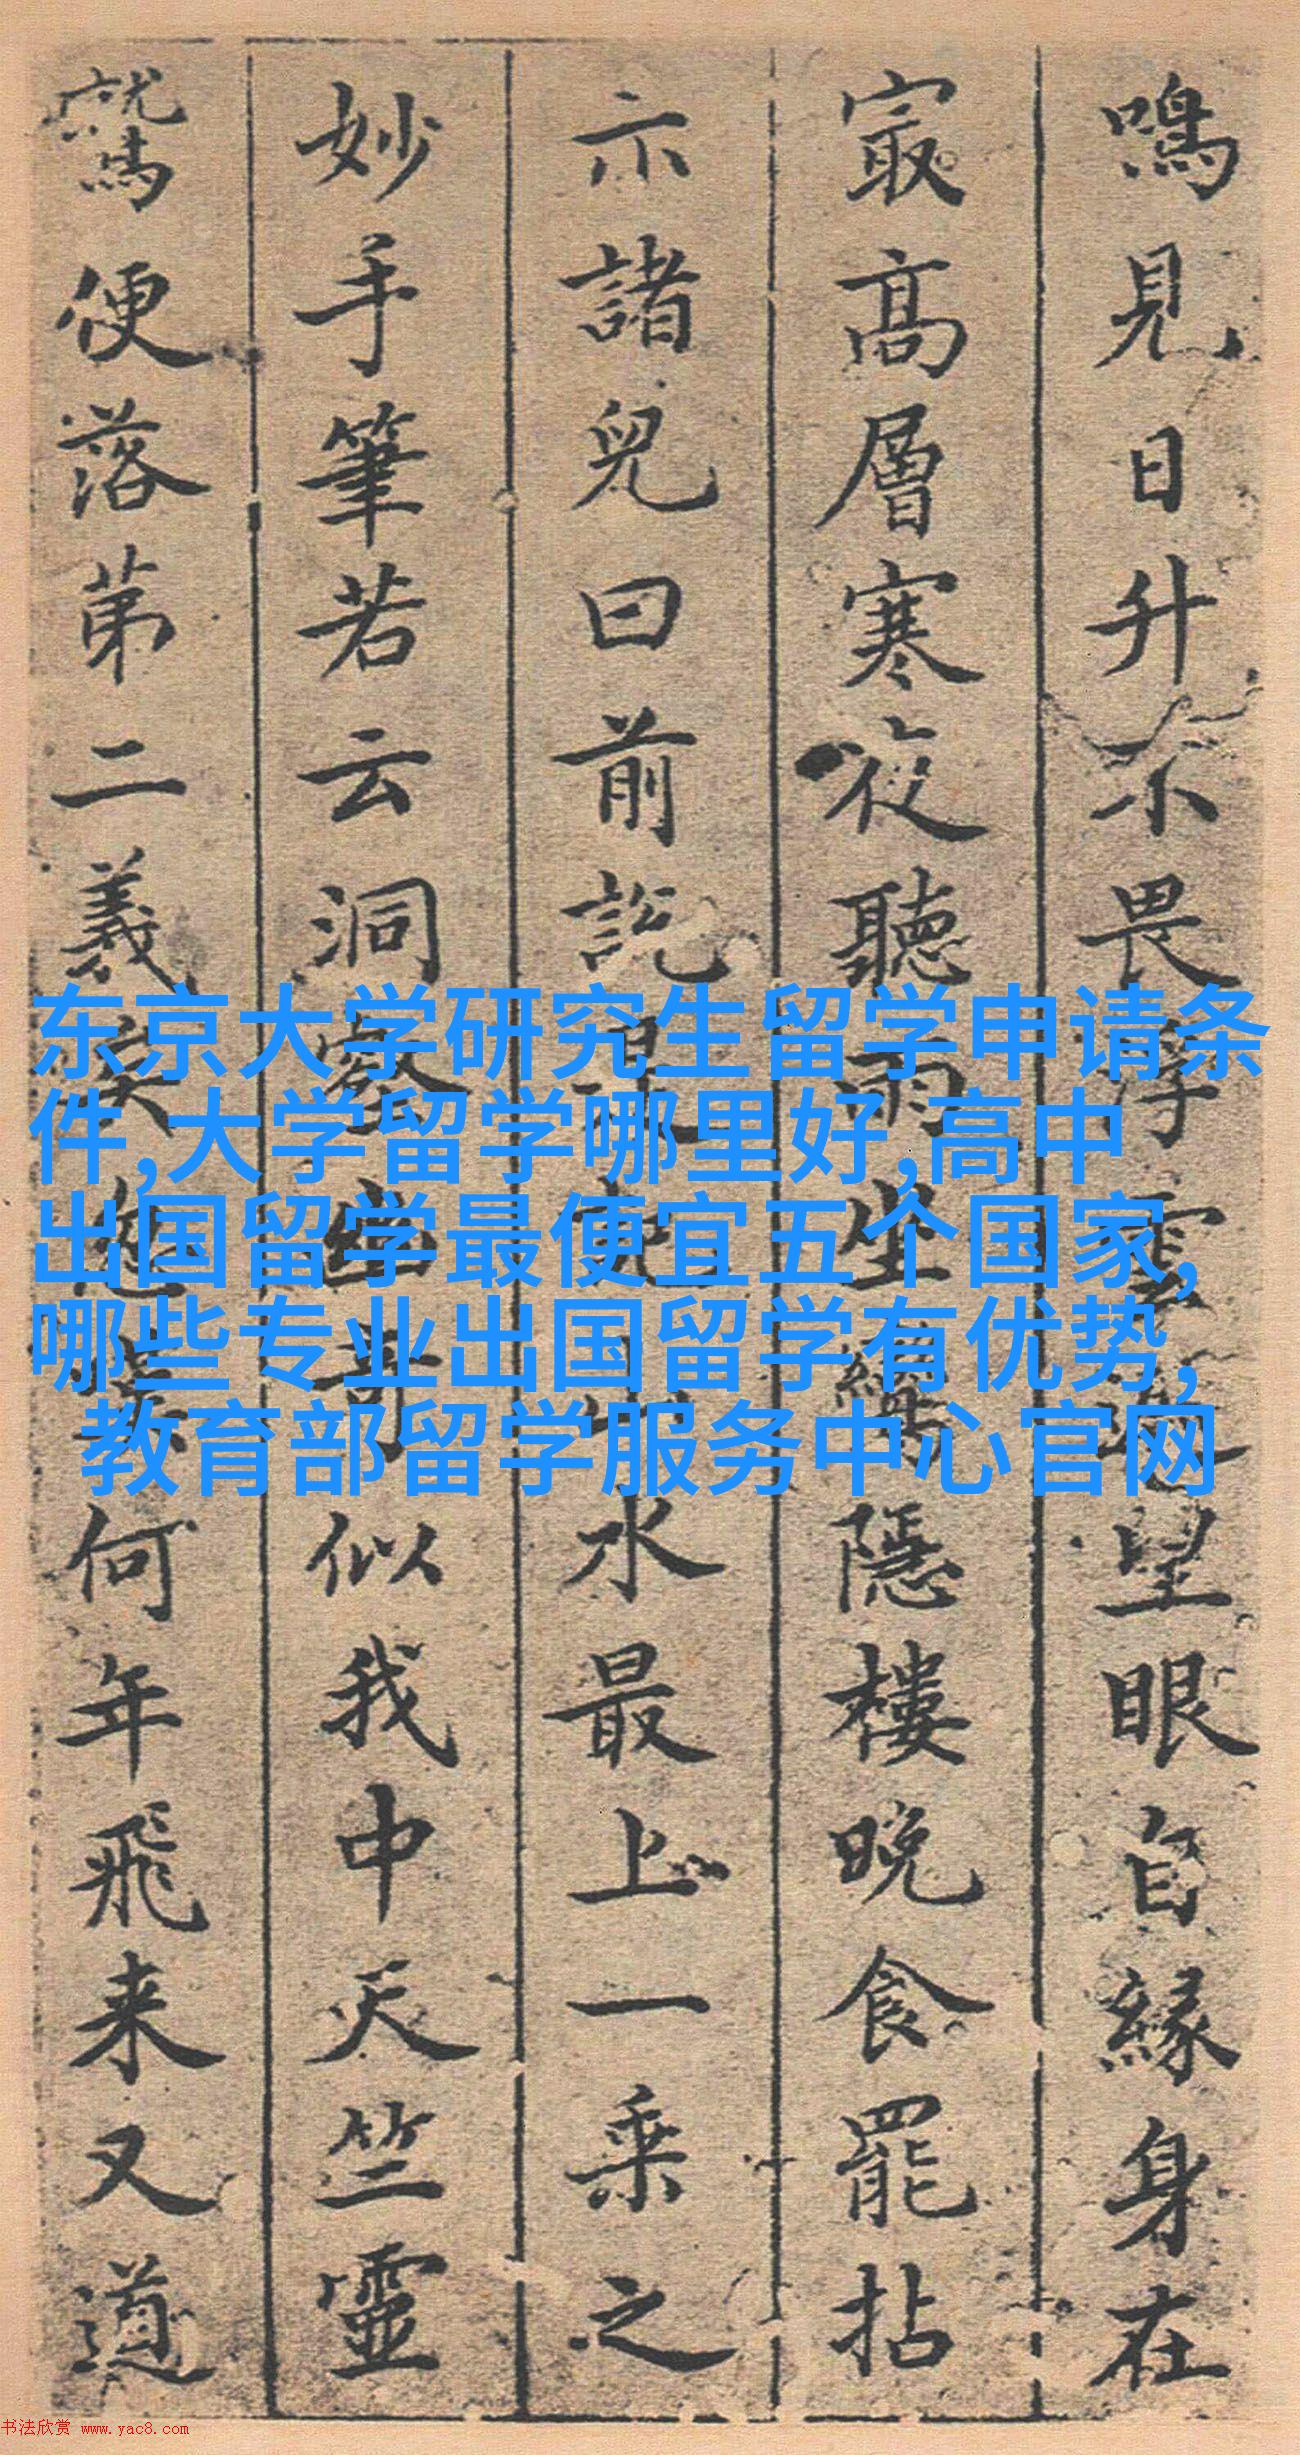 鳴見日升不畏浮雲望眼自緣身在
㝡高層寒夜聽雨坐隱樓晚食罷拈
示諸兒曰前説是水最上一乘之
妙手筆若云洞幽奇似我中天竺靈
鷲便落第二義矣何年飛来又道
东京大学研究生留学申请条
件,大学留学哪里好,高中
出国留学最便宜五个国家,
哪些专业出国留学有优势,
教育部留学服务中心官网
书法欣赏 www.yac8.com